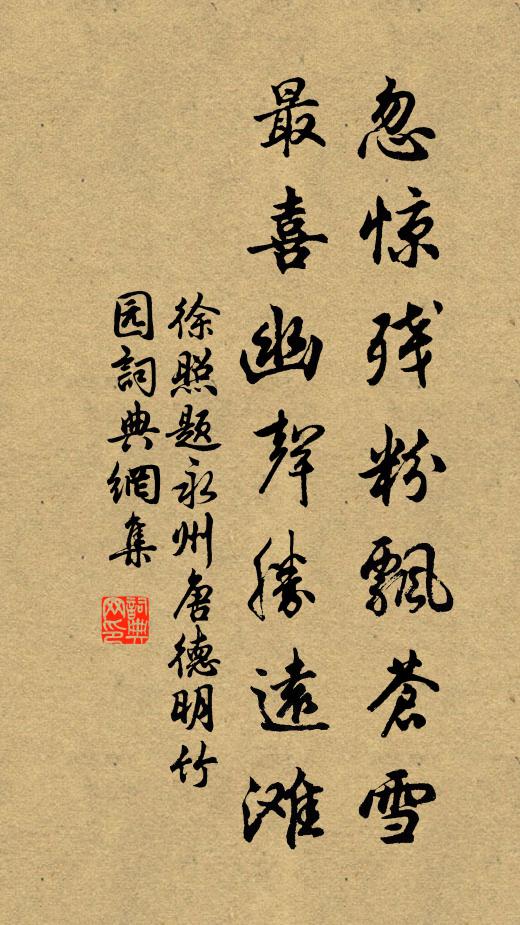 忽惊残粉飘苍雪
最喜幽聲勝遠滩
徐照题永州唐德明竹
园詞典網集
詞典网印